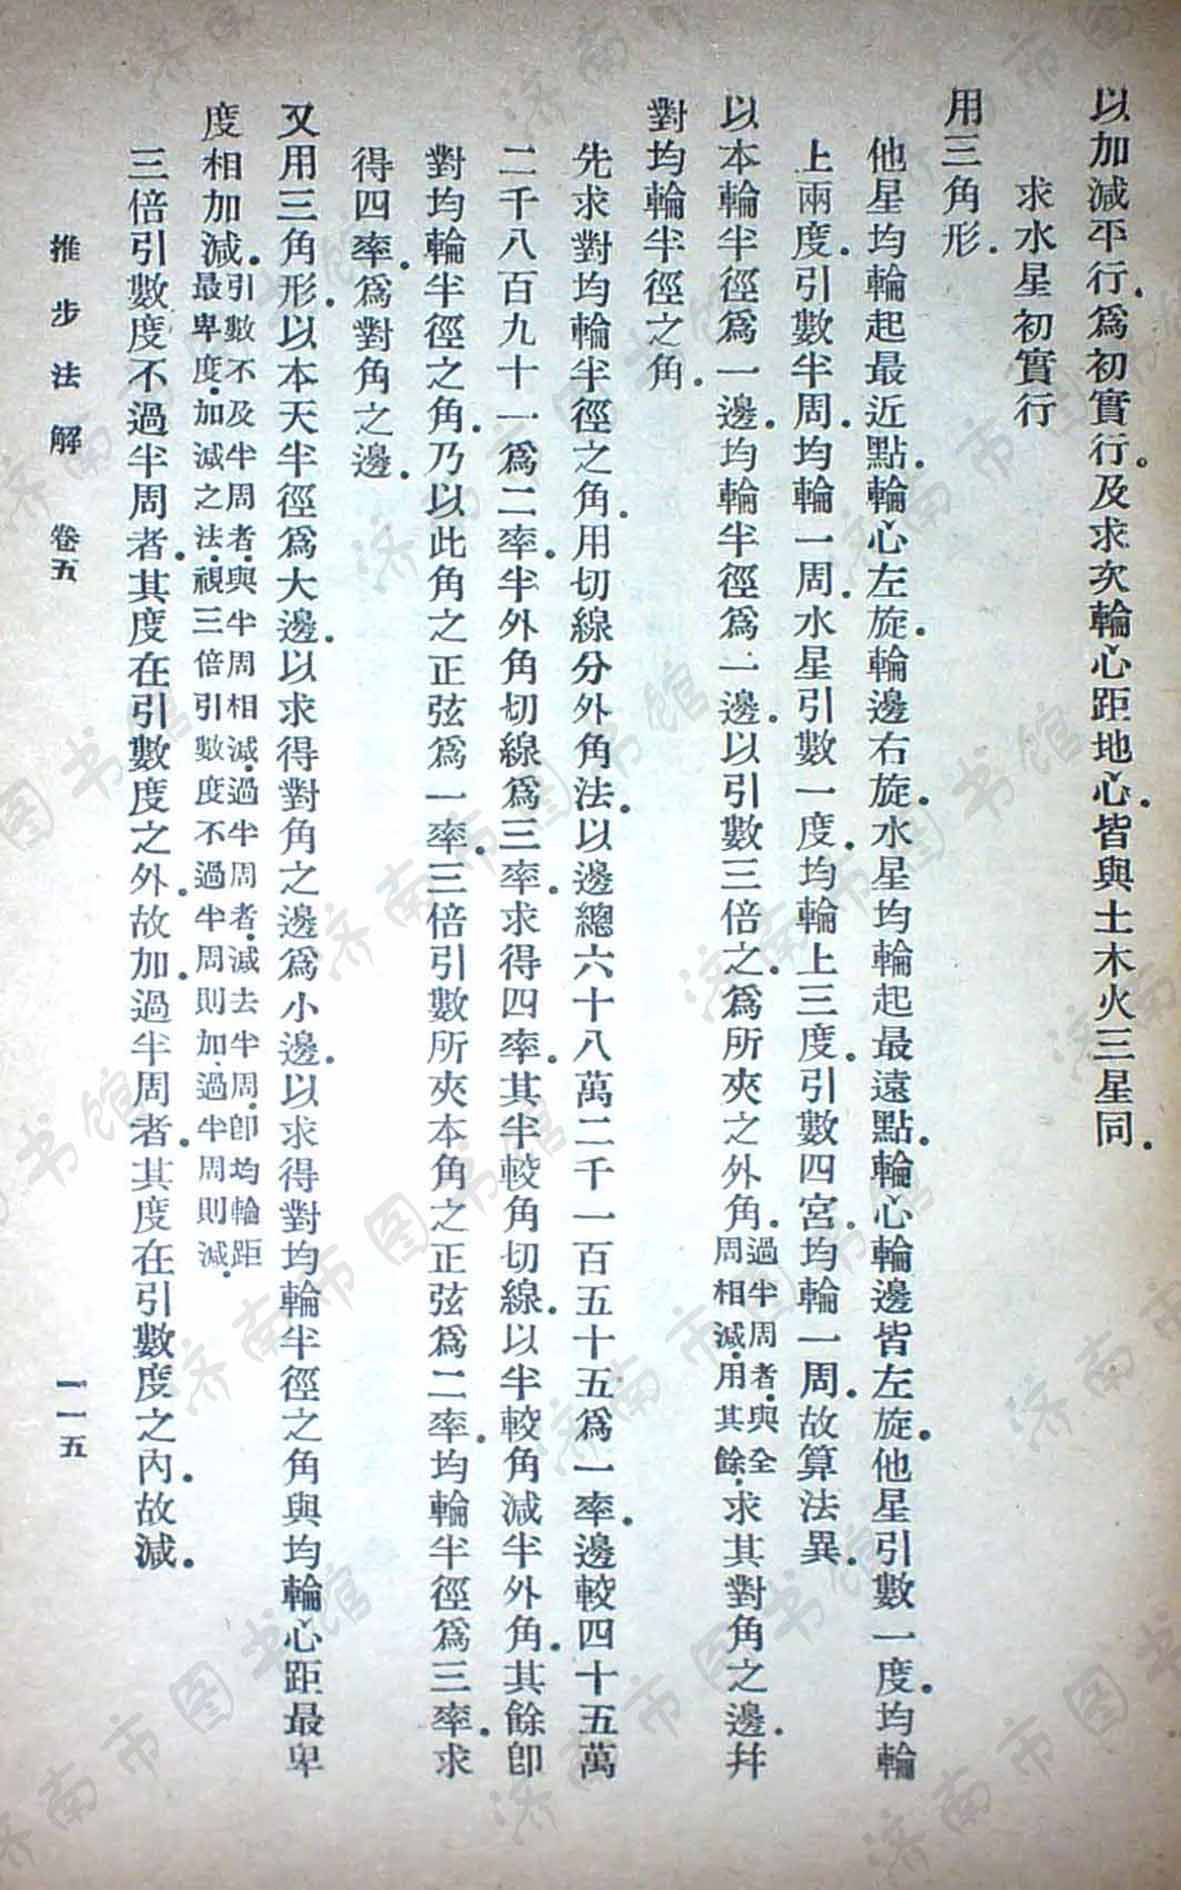 以加減平行．爲初實行。及求次輪心距地心．皆與土木火三星同．
求水星初實行
用三角形．
他星均輪起最近點．輪心左旋．輪邊右旋．水星均輪起最遠點．輪心輪邊皆左旋．他星引數一度．均輪
上兩度．引數半周．均輪一周．水星引數一度．均輪上三度．引數四宮．均輪一周．故算法異．
以本輪半徑爲一邊．均輪半徑爲一邊．以引數三倍之．爲所夾之外角．過半周者．與全周相減．用其餘．求其對角之邊．幷
對均輪半徑之角．
先求對均輪半徑之角．用切線分外角法．以邊總六十八萬二千一百五十五爲一率．邊較四十五萬
二千八百九十一爲二率．半外角切線爲三率．求得四率．其半較角切線．以半較角減半外角．其餘卽
對均輪半徑之角．乃以此角之正弦爲一率．三倍引數所夾本角之正弦爲二率．均輪半徑爲三率．求
得四率．爲對角之邊．
又用三角形．以本天半徑爲大邊．以求得對角之邊爲小邊．以求得對均輪半徑之角與均輪心距最卑
度相加減．引數不及半周者．與半周相減．過半周者．減去半周．卽均輪距最卑度．加減之法．視三倍引數度不過半周則加．過半周則減．
三倍引數度不過半周者．其度在引數度之外．故加．過半周者．其度在引數度之內．故減．
推步法解 卷五
一一五
济南市图书馆